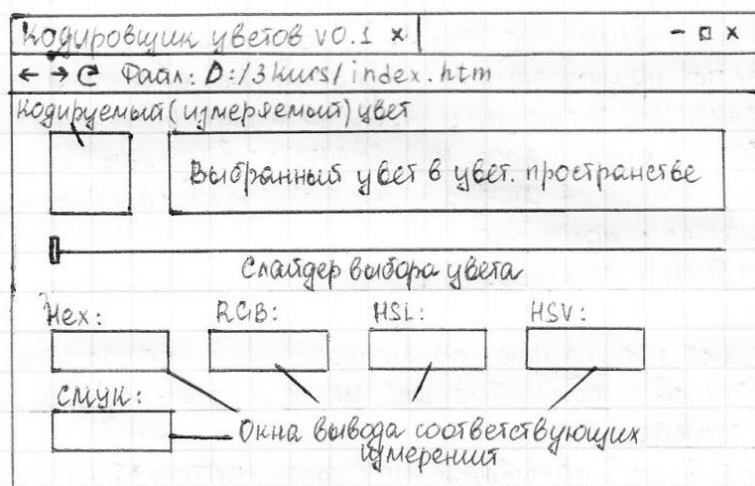 Кодировщик цветов v0.1 x - □ x
← → C Файл: D:/3kurs/index.htm
Кодируемый (измеряемый) цвет
Выбранный цвет в цвет. пространстве
Слайдер выбора цвета
Hex: RGB: HSL: HSV:
CMYK:
Окна вывода соответствующих
измерений